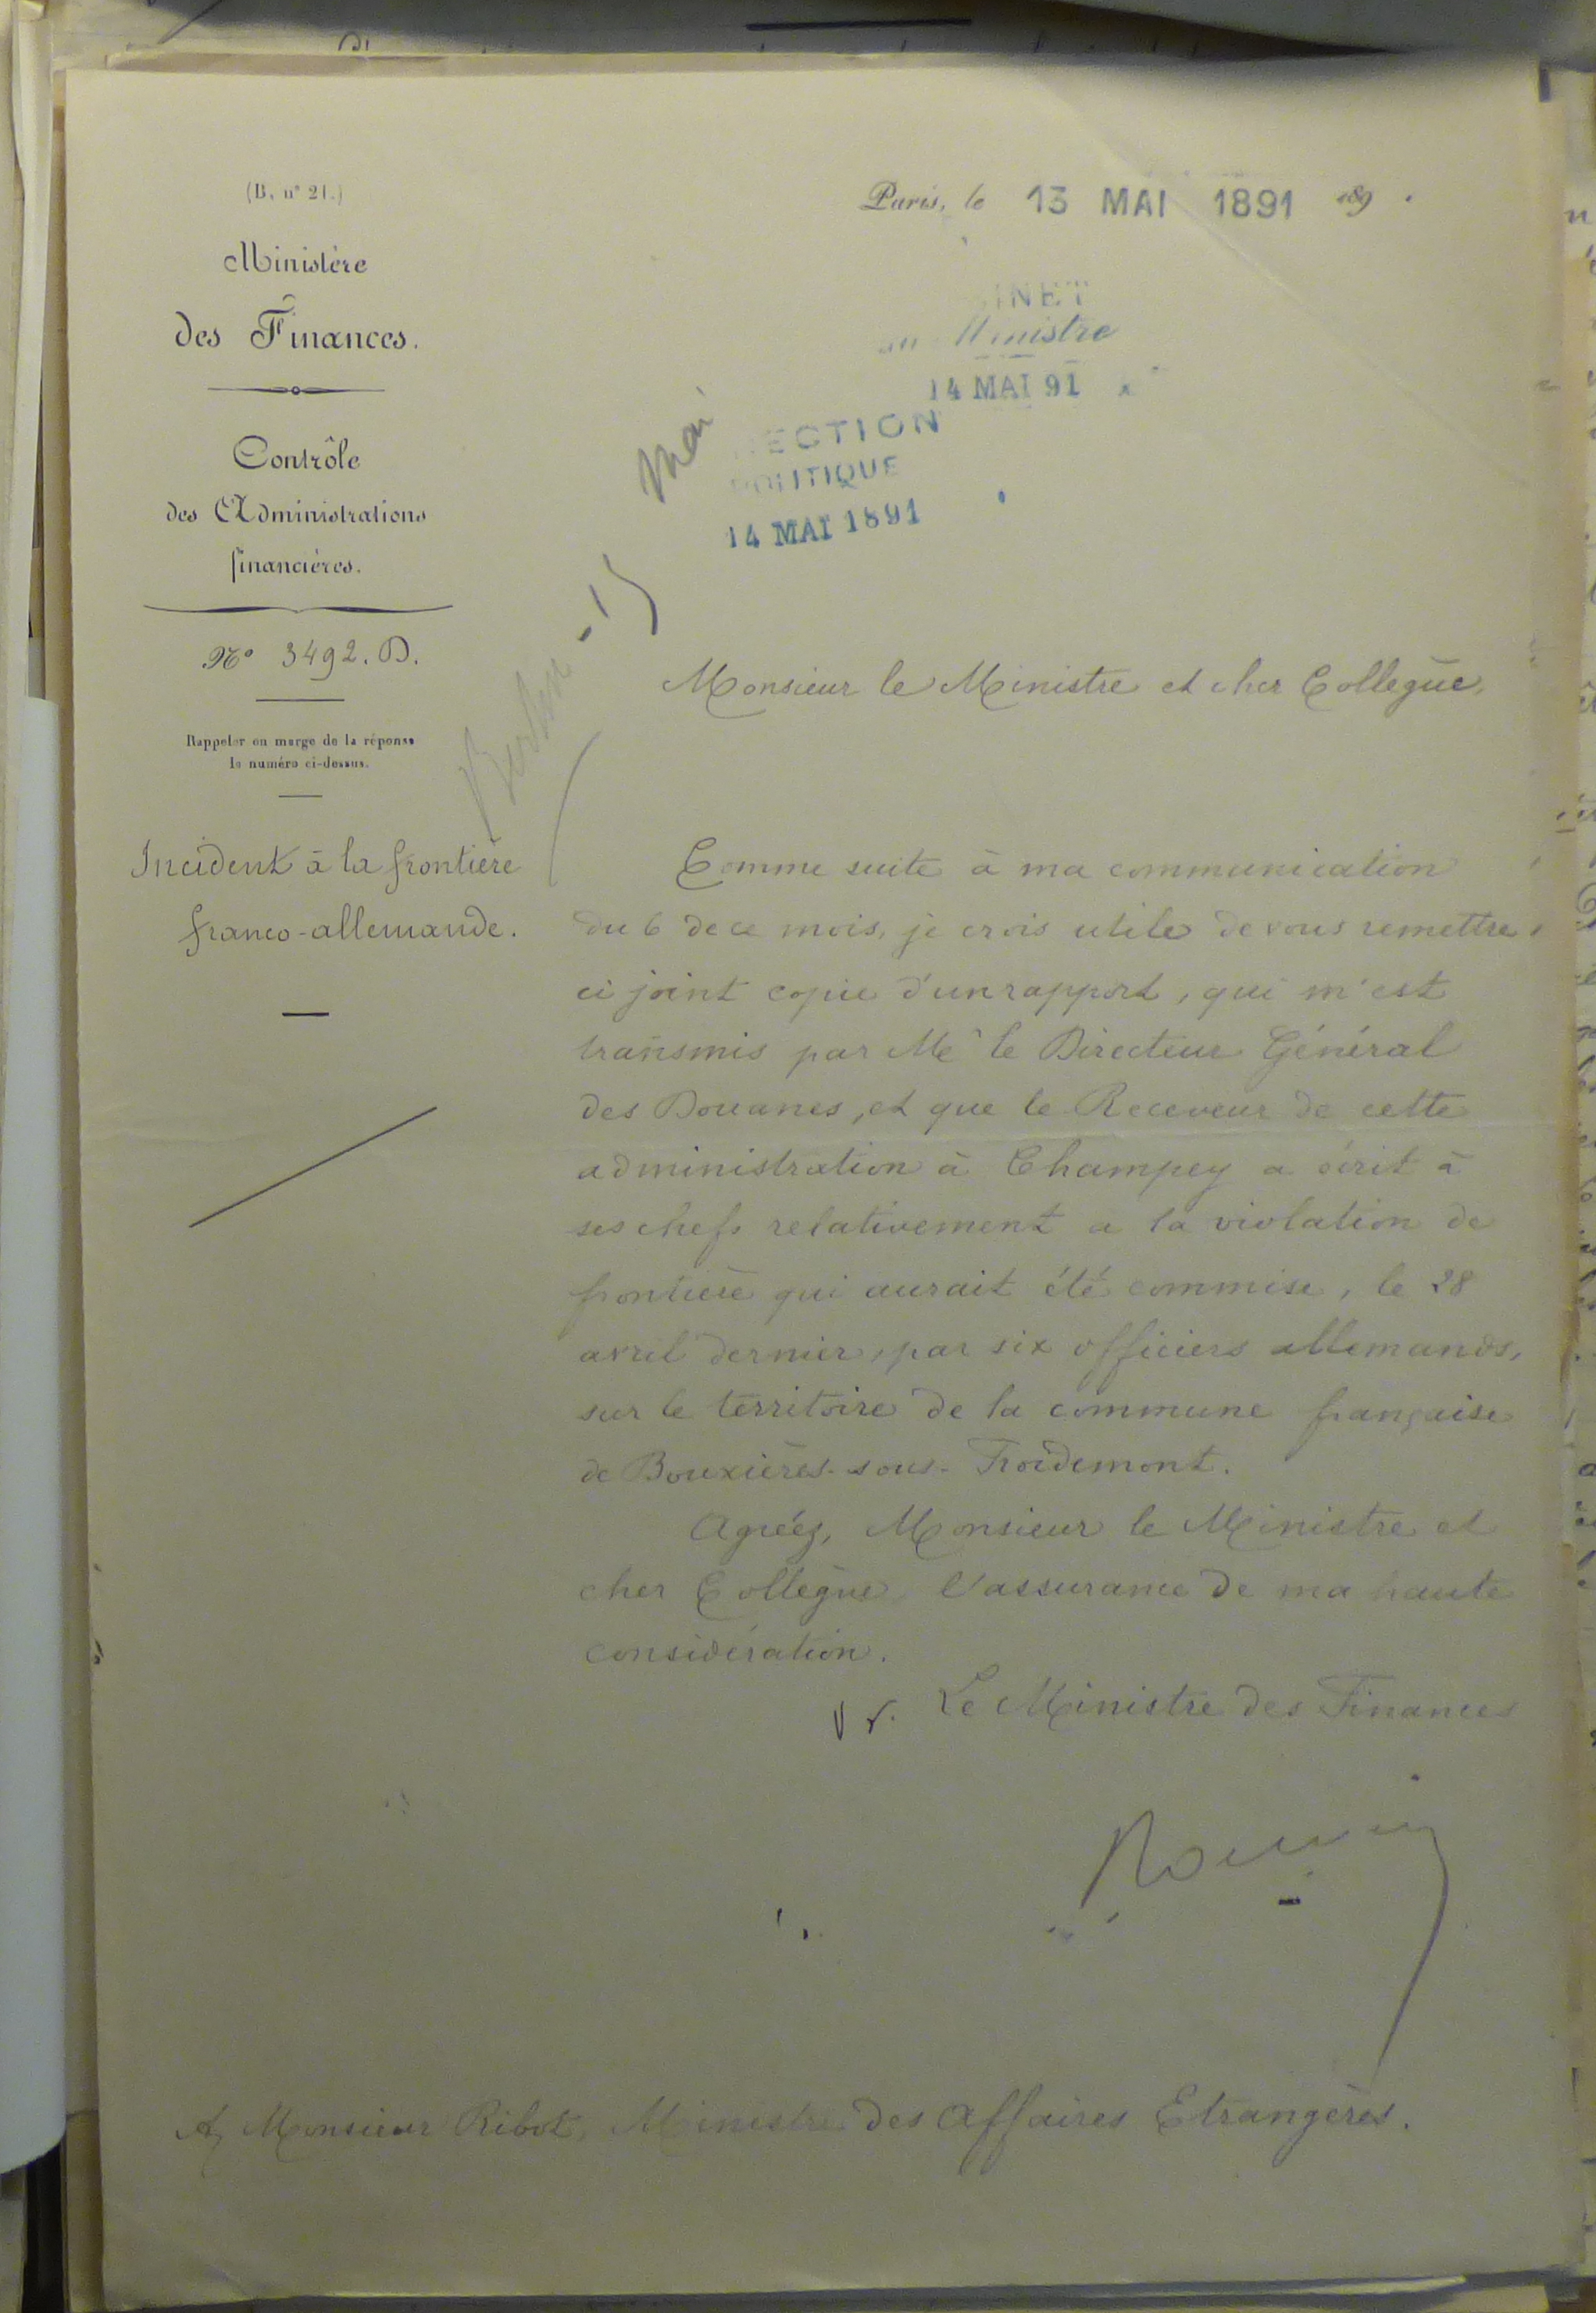 (B. n° 21.)
Ministère
des Finances.
Contrôle
des Administrations
financières.
N° 3492. D.
Rappeler en marge de la réponse
le numéro ci-dessus.
Incident à la frontière
franco-allemande.
Paris, le 13 MAI 1891 189 .
INET
Ministre
14 MAI 91
ECTION
POLITIQUE
14 MAI 1891
Mai
Berlin
Monsieur le Ministre et cher Collègue,
Comme suite à ma communication
du 6 de ce mois, je crois utile de vous remettre
ci joint copie d'un rapport, qui m'est
transmis par Mr le Directeur Général
des Douanes, et que le Receveur de cette
administration à Champey a écrit à
ses chefs relativement a la violation de
frontière qui aurait été commise, le 28
avril dernier, par six officiers allemands,
sur le territoire de la commune française
de Bouxières-sous-Froidemont.
Agréez, Monsieur le Ministre et
cher Collègue l'assurance de ma haute
considération.
Le Ministre des Finances
Rouvier
A Monsieur Ribot, Ministre des Affaires Etrangères.